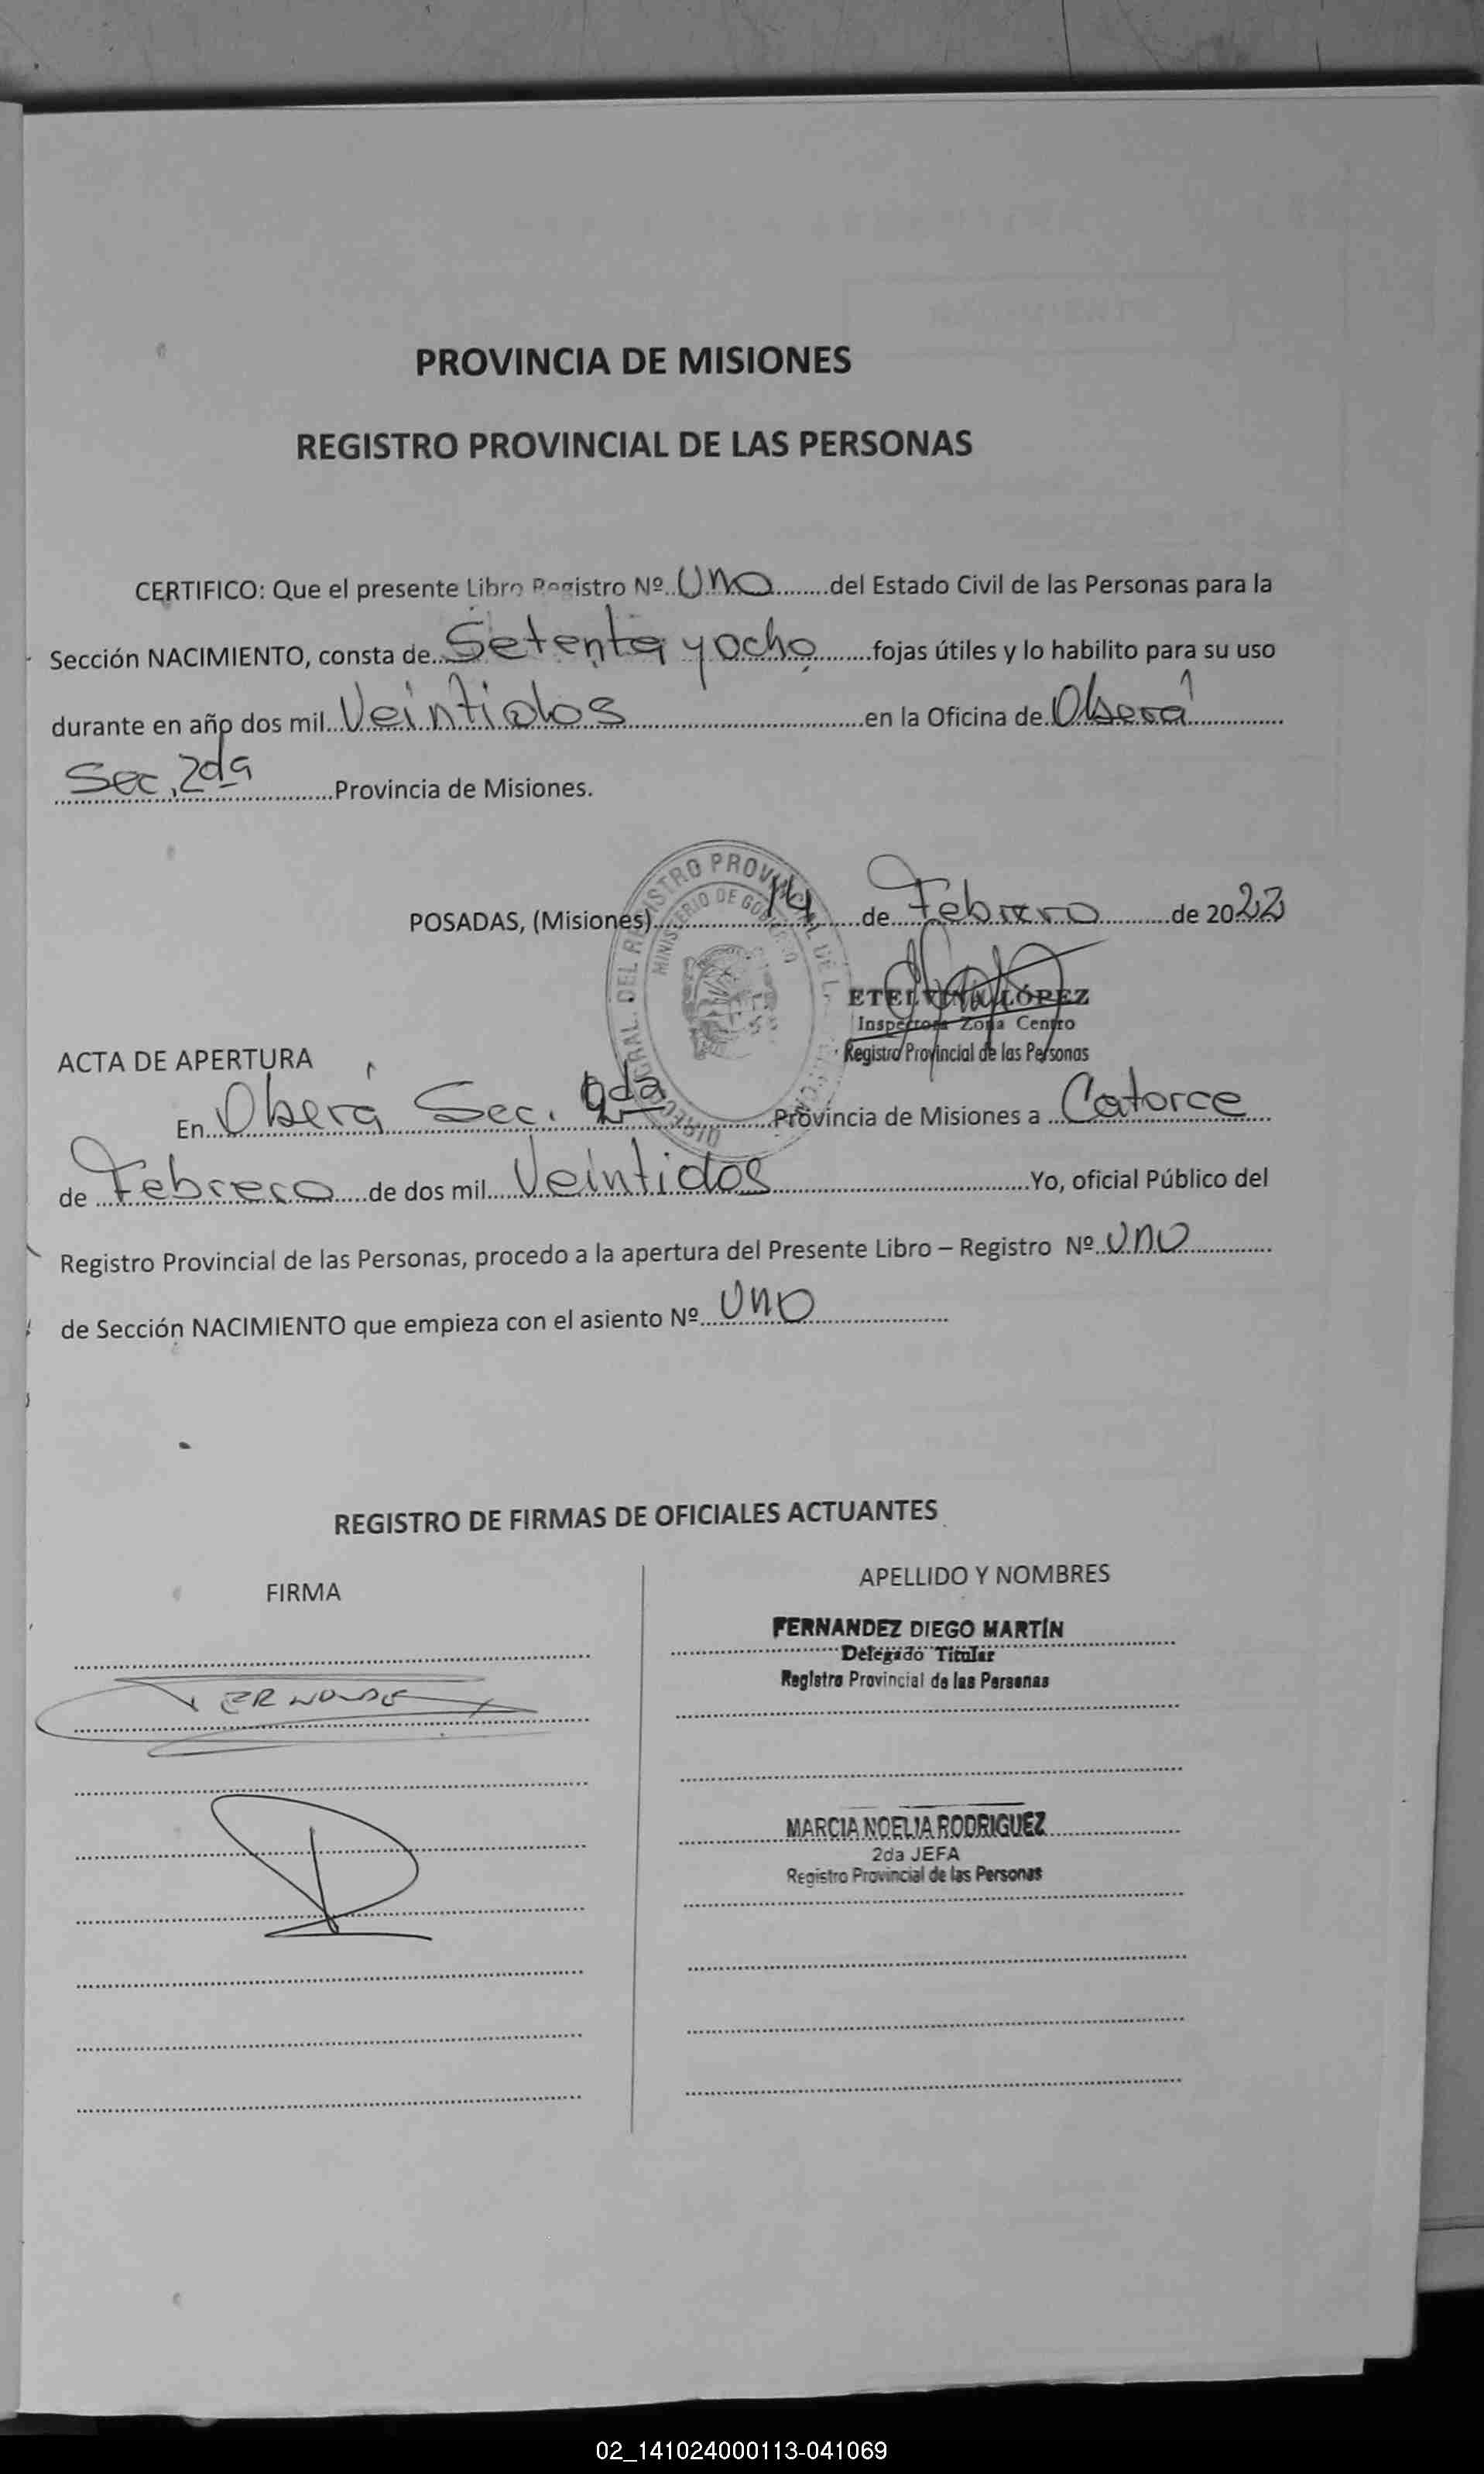 PROVINCIA DE MISIONES
REGISTRO PROVINCIAL DE LAS PERSONAS
CERTIFICO: Que el presente Libro Registro Nº..Uno.........del Estado Civil de las Personas para la
Sección NACIMIENTO, consta de...Setenta y ocho.........fojas útiles y lo habilito para su uso
durante en año dos mil...Veintidos.......................................en la Oficina de..Oberá..............
Sec. 2da..............Provincia de Misiones.
POSADAS, (Misiones)..............14.......de....Febrero...........de 2022
DEL REGISTRO PROVINCIAL DE L
MINISTERIO DE GOBIERNO
ETELVINA LÓPEZ
Inspectora Zona Centro
Registro Provincial de las Personas
ACTA DE APERTURA
En..Oberá Sec. 2da..............Provincia de Misiones a ...Catorce.....
de ...Febrero.....de dos mil.....Veintidos........................................Yo, oficial Público del
Registro Provincial de las Personas, procedo a la apertura del Presente Libro – Registro Nº..Uno..............
de Sección NACIMIENTO que empieza con el asiento Nº...Uno......................
REGISTRO DE FIRMAS DE OFICIALES ACTUANTES
FIRMA
APELLIDO Y NOMBRES
FERNANDEZ DIEGO MARTÍN
Delegado Titular
Registro Provincial de las Personas
MARCIA NOELIA RODRIGUEZ
2da JEFA
Registro Provincial de las Personas
02_141024000113-041069